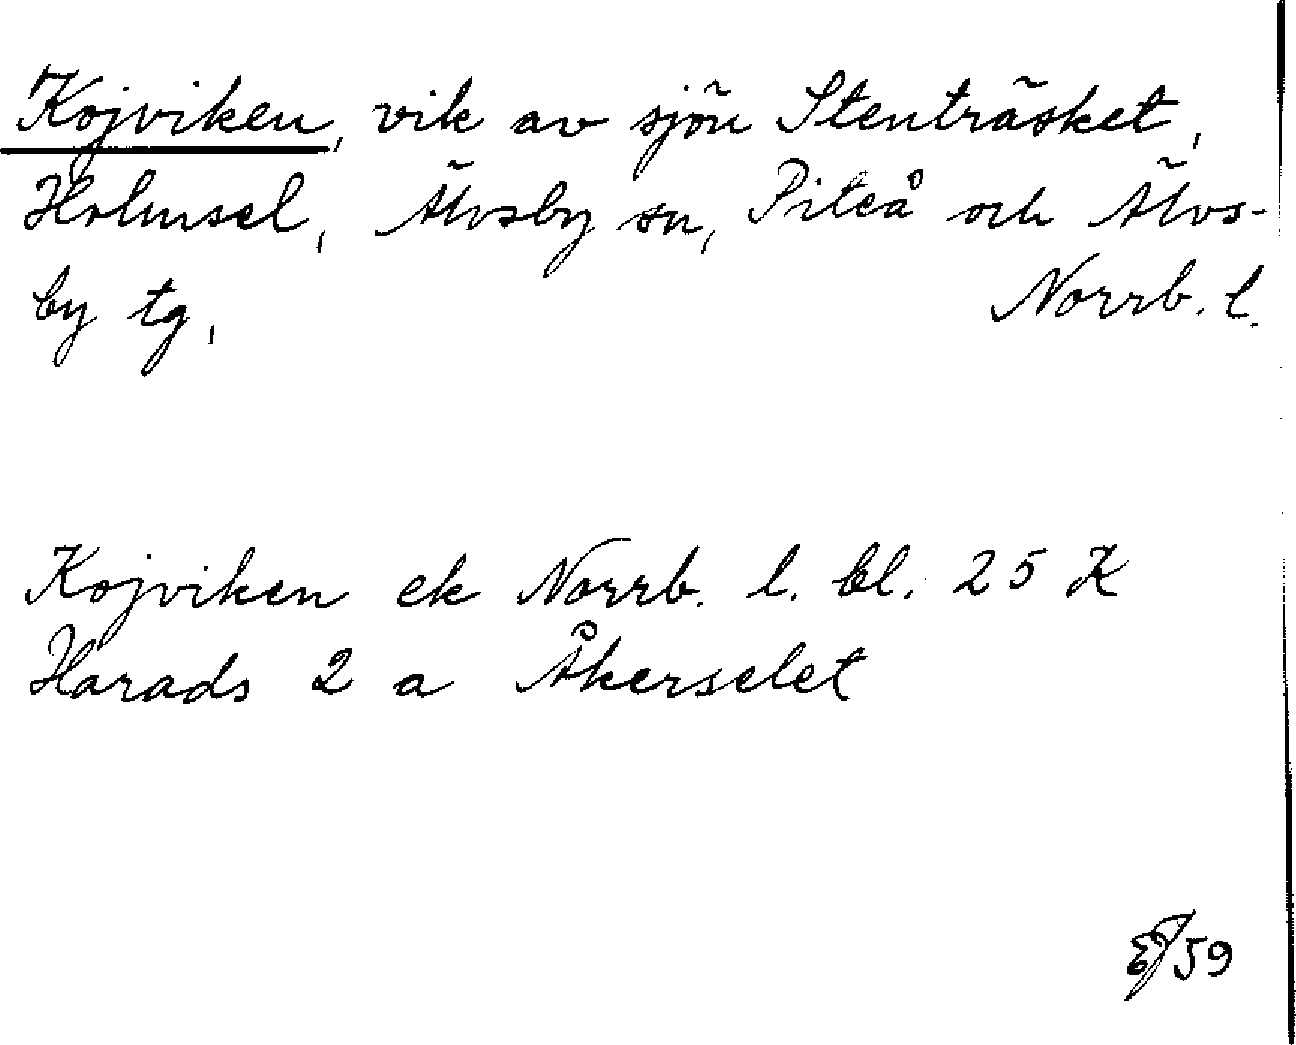 Kojviken, vik av sjön Stenträsket,
Holmsel, Älvsby sn, Piteå och Älvs-
by tg, Norrb. l.
Kojviken ek Norrb. l. bl. 25 K
Harads 2 a Åkerselet
59